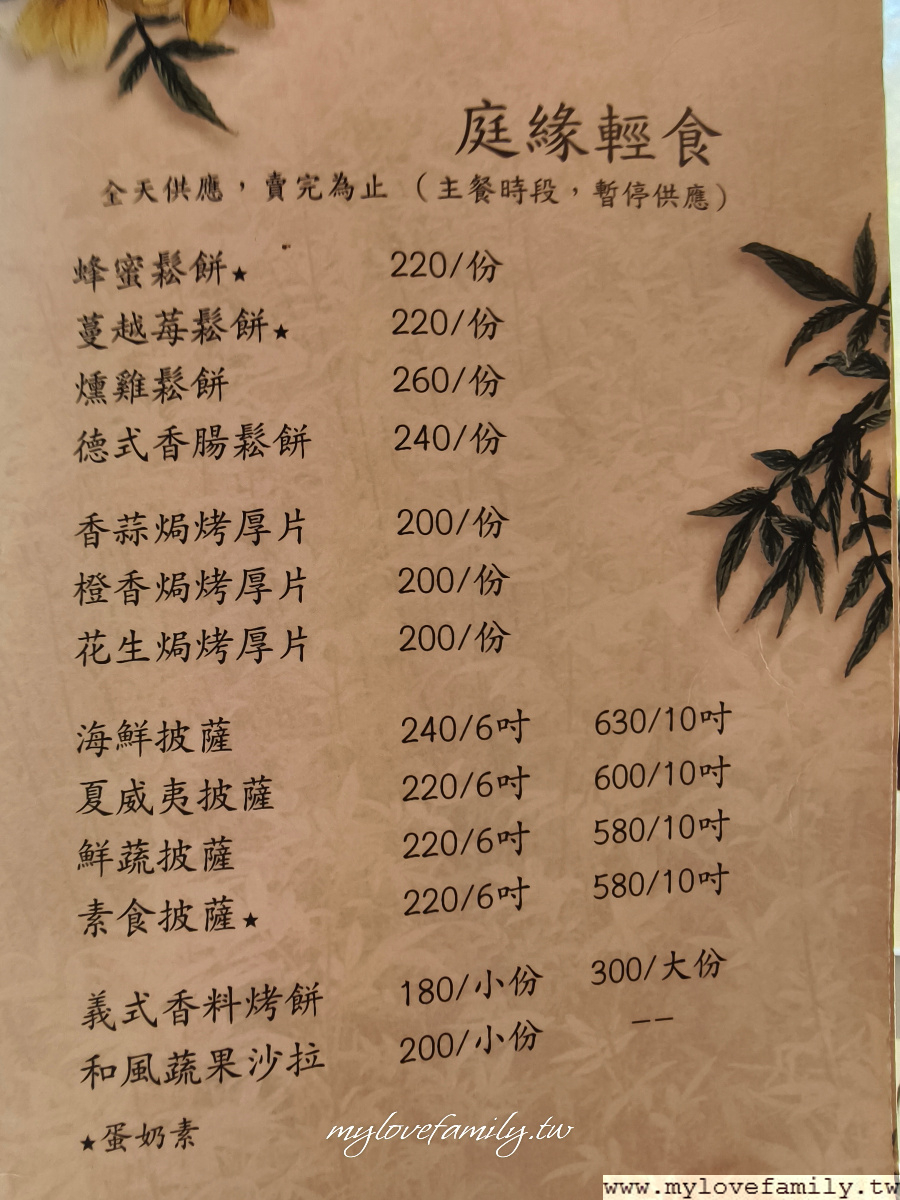 庭緣輕食
全天供應，賣完為止（主餐時段，暫停供應）
蜂蜜鬆餅★ 220/份
蔓越莓鬆餅★ 220/份
燻雞鬆餅 260/份
德式香腸鬆餅 240/份
香蒜焗烤厚片 200/份
橙香焗烤厚片 200/份
花生焗烤厚片 200/份
海鮮披薩 240/6吋 630/10吋
夏威夷披薩 220/6吋 600/10吋
鮮蔬披薩 220/6吋 580/10吋
素食披薩★ 220/6吋 580/10吋
義式香料烤餅 180/小份 300/大份
和風蔬果沙拉 200/小份 --
★蛋奶素
mylovefamily.tw
www.mylovefamily.tw